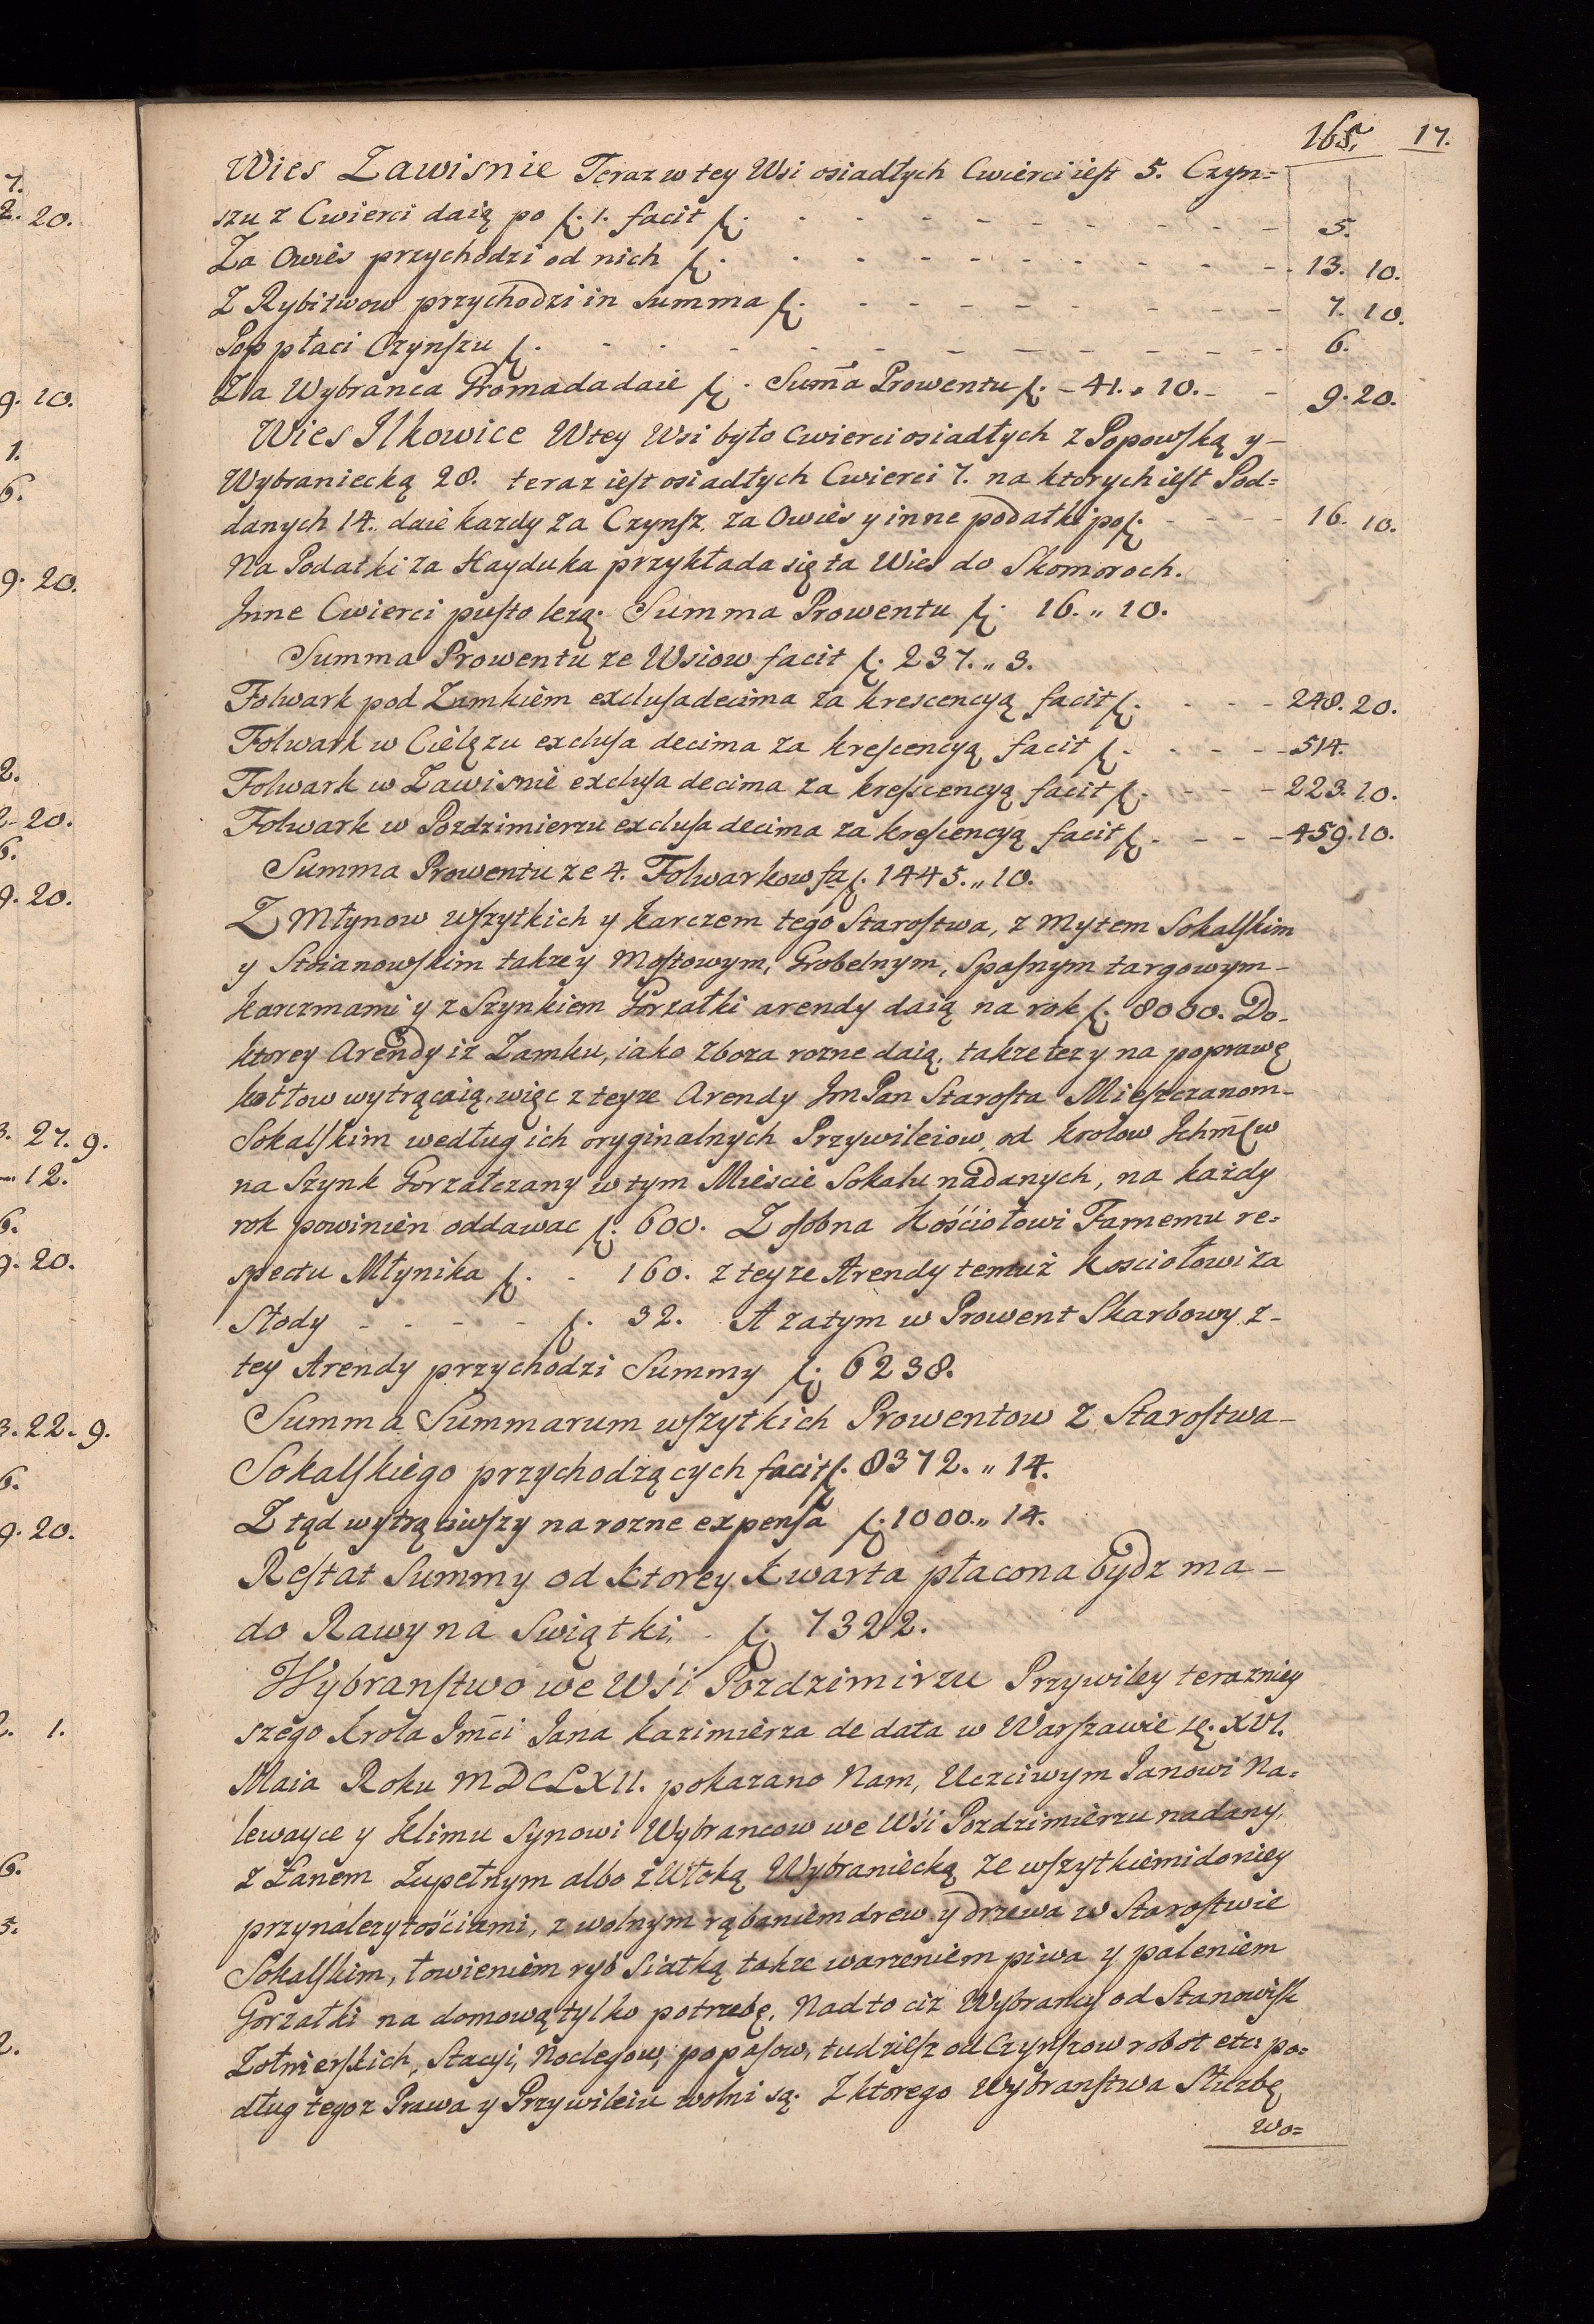 165. 17.
Wies Zawisnie Teraz w tey Wsi osiadłych Cwierci iest 5. Czyn=
szu z Cwierci daią po f. 1. facit f. - - - - - - - - - 5.
Za Owies przychodzi od nich f. - - - - - - - - - 13. 10.
Z Rybitwow przychodzi in Summa f. - - - - - - - - 7. 10.
Pop płaci Czynszu f. - - - - - - - - - - - 6.
Za Wybranca Gromada daie f. Suma Prowentu f. - 41. „ 10. - - 9. 20.
Wies Ilkowice W tey Wsi było Cwierci osiadłych z Popowską y -
Wybraniecką 28. teraz iest osiadłych Cwierci 7. na ktorych iest Pod=
danych 14. daie kazdy za Czynsz, za Owies y inne podatki po f. - - - - 16. 10.
Na Podatki za Hayduka przykłada się ta Wies do Skomoroch.
Inne Cwierci pusto lezą. Summa Prowentu f. 16. „ 10.
Summa Prowentu ze Wsiow facit f. 237. „ 3.
Folwark pod Zamkiem exclusa decima za krescencyą facit f. - - - 248. 20.
Folwark w Cielązu exclusa decima za krescencyą facit f. - - - - 514.
Folwark w Zawisnie exclusa decima za krescencyą facit f. - - - - 223. 10.
Folwark w Pozdzimierzu exclusa decima za krescencyą facit f. - - - 459. 10.
Summa Prowentu ze 4. Folwarkow fa f. 1445. „ 10.
Z Młynow wszytkich y karczem tego Starostwa, z Mytem Sokalskim
y Stoianowskim takze y Mostowym, Grobelnym, Spasnym targowym -
karczmami y z Szynkiem Gorzałki arendy daią na rok f. 8000. Do -
ktorey Arendy iz Zamku, iako zboza rozne daią, takze tez y na poprawę
kotłow wytrącaią, więc z teyze Arendy Jm Pan Starosta Mieszczanom -
Sokalskim według ich oryginalnych Przywileiow od krolow Ichmciw
na Szynk Gorzałczany w tym Miescie Sokalu nadanych, na każdy
rok powinien oddawac f. 600. Z osobna Kościołowi Farnemu re=
spectu Młynika f. - 160. z teyze Arendy temuż Kosciołowi za
Słody - - - - f. 32. A zatym w Prowent Skarbowy z -
tey Arendy przychodzi Summy f. 6238.
Summa Summarum wszytkich Prowentow z Starostwa -
Sokalskiego przychodzących facit f. 8372. „ 14.
Z tąd wytrąciwszy na rozne expensa f. 1000. „ 14.
Restat Summy od ktorey kwarta płacona bydz ma -
do Rawy na Swiątki. - f. 7322.
Wybranstwo we Wśi Pozdzimirzu Przywiley terazniey
szego Krola Jmći Jana Kazimierza de data w Warszawie XVI.
Maia Roku MDCLXII. pokazano Nam, Uczciwym Janowi Na=
lewayce y Klimu Synowi Wybrancow we Wśi Pozdzimierzu nadany,
z Łanem Zupełnym albo z Włoką Wybraniecką ze wszytkiemi do niey
przynalezytościami, z wolnym rąbaniem drew y drzewa w Starostwie
Sokalskim, łowieniem ryb Siatką takze warzeniem piwa y paleniem
Gorzałki na domową tylko potrzebę. Nad to ciz Wybrancy od Stanowisk
Zołnierskich, Stacyi, Noclegow, popasow, tudziesz od Czynszow robot etc: po=
dług tegoz Prawa y Przywileiu wolni są. Z ktorego Wybranstwa Służbę
wo=
7.
2. 20.
9. 10.
1.
6.
9. 20.
2.
2. 20.
6.
9. 20.
3. 27. 9.
12.
6.
9. 20.
3. 22. 9.
6.
9. 20.
2. 1.
6.
5.
2.